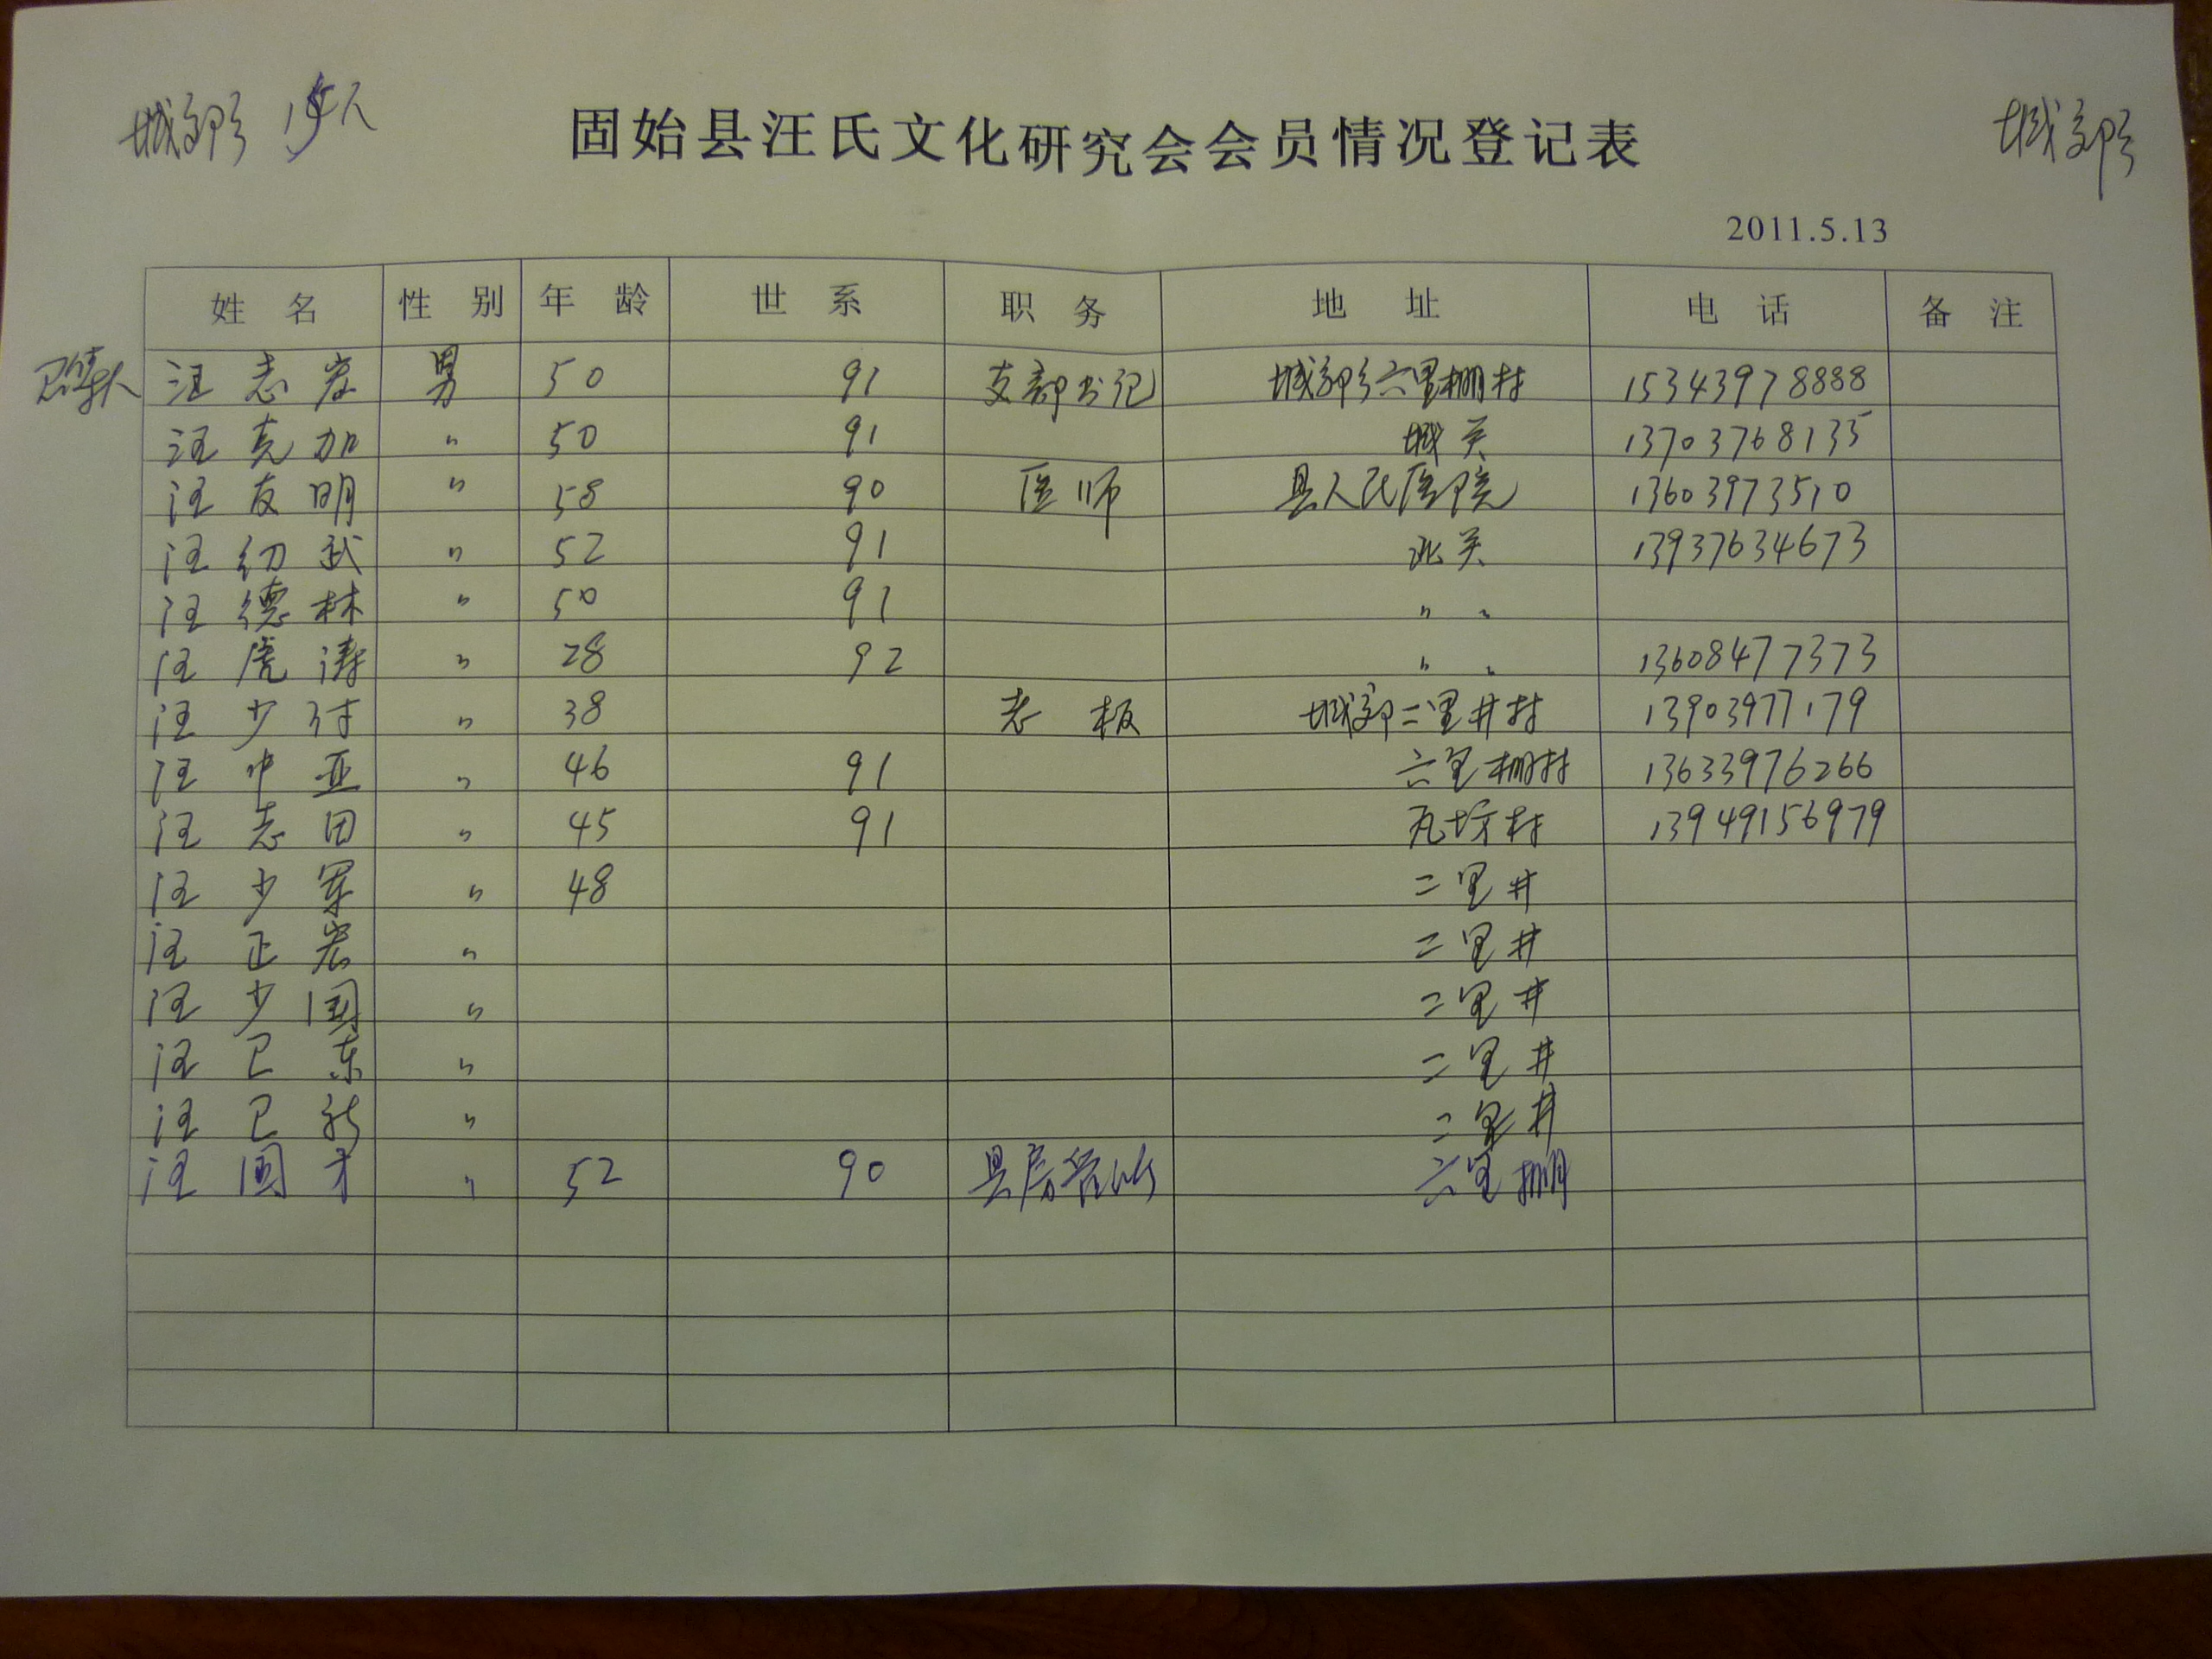 城郊乡 15人
固始县汪氏文化研究会会员情况登记表
城郊乡
2011.5.13
姓名 性别 年龄 世系 职务 地址 电话 备注
汪志宏 男 50 91 支部书记 城郊乡六里棚村 15343978888
汪克加 〃 50 91 城关 13703768135
汪友明 〃 58 90 医师 县人民医院 13603973510
汪幼武 〃 52 91 北关 13937634673
汪德林 〃 50 91 〃 〃
汪虎涛 〃 28 92 〃 〃 13608477373
汪少付 〃 38 老板 城郊二里井村 13903977179
汪中亚 〃 46 91 六里棚村 13633976266
汪志田 〃 45 91 瓦坊村 13949156979
汪少军 〃 48 二里井
汪正宏 〃 二里井
汪少国 〃 二里井
汪卫东 〃 二里井
汪卫新 〃 二里井
汪国才 〃 52 90 县房管所 六里棚